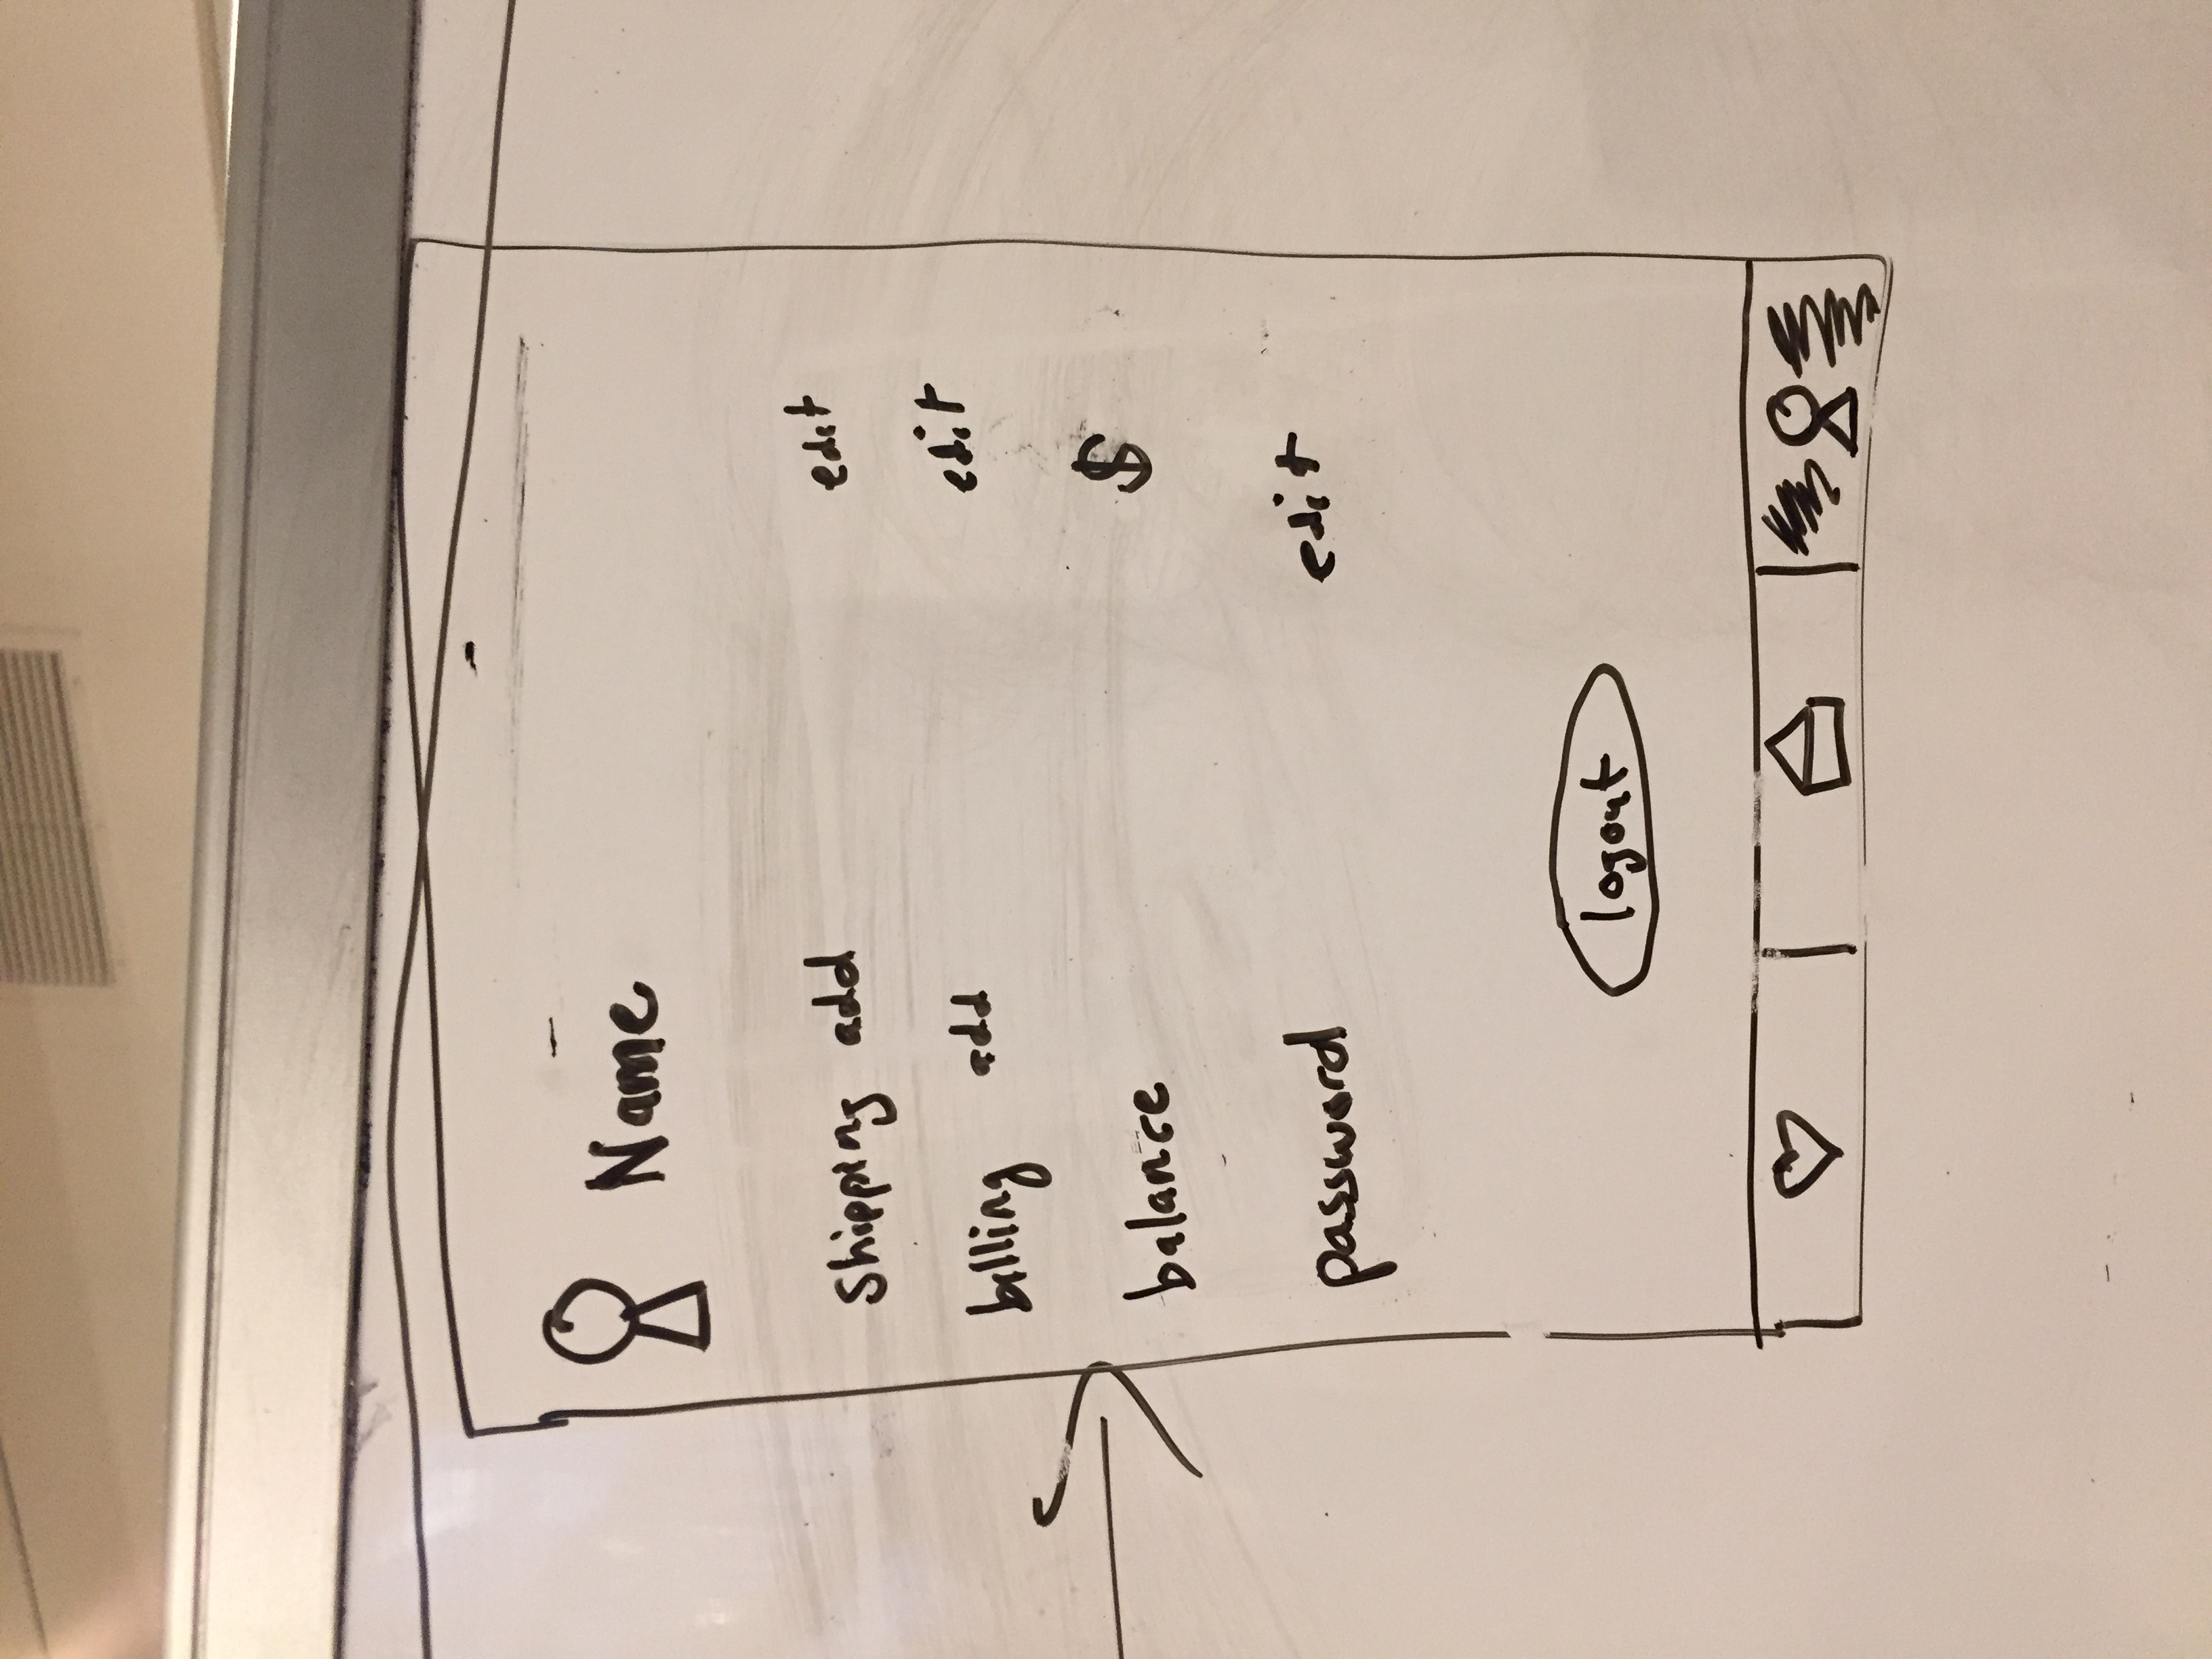 Name
shipping add edit
billing add edit
balance $
password edit
logout